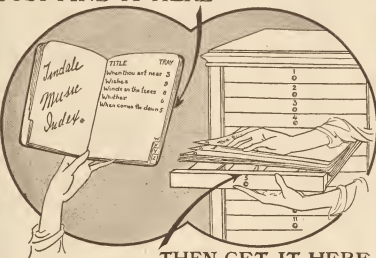 JUST FIND IT HERE
Tindale
Music
Index.
TITLE TRAY
When thou art near 3
Wishes
Winds in the trees 8
Whither 6
When comes the dawn 5
1
2
3
4
11
THEN GET IT HERE